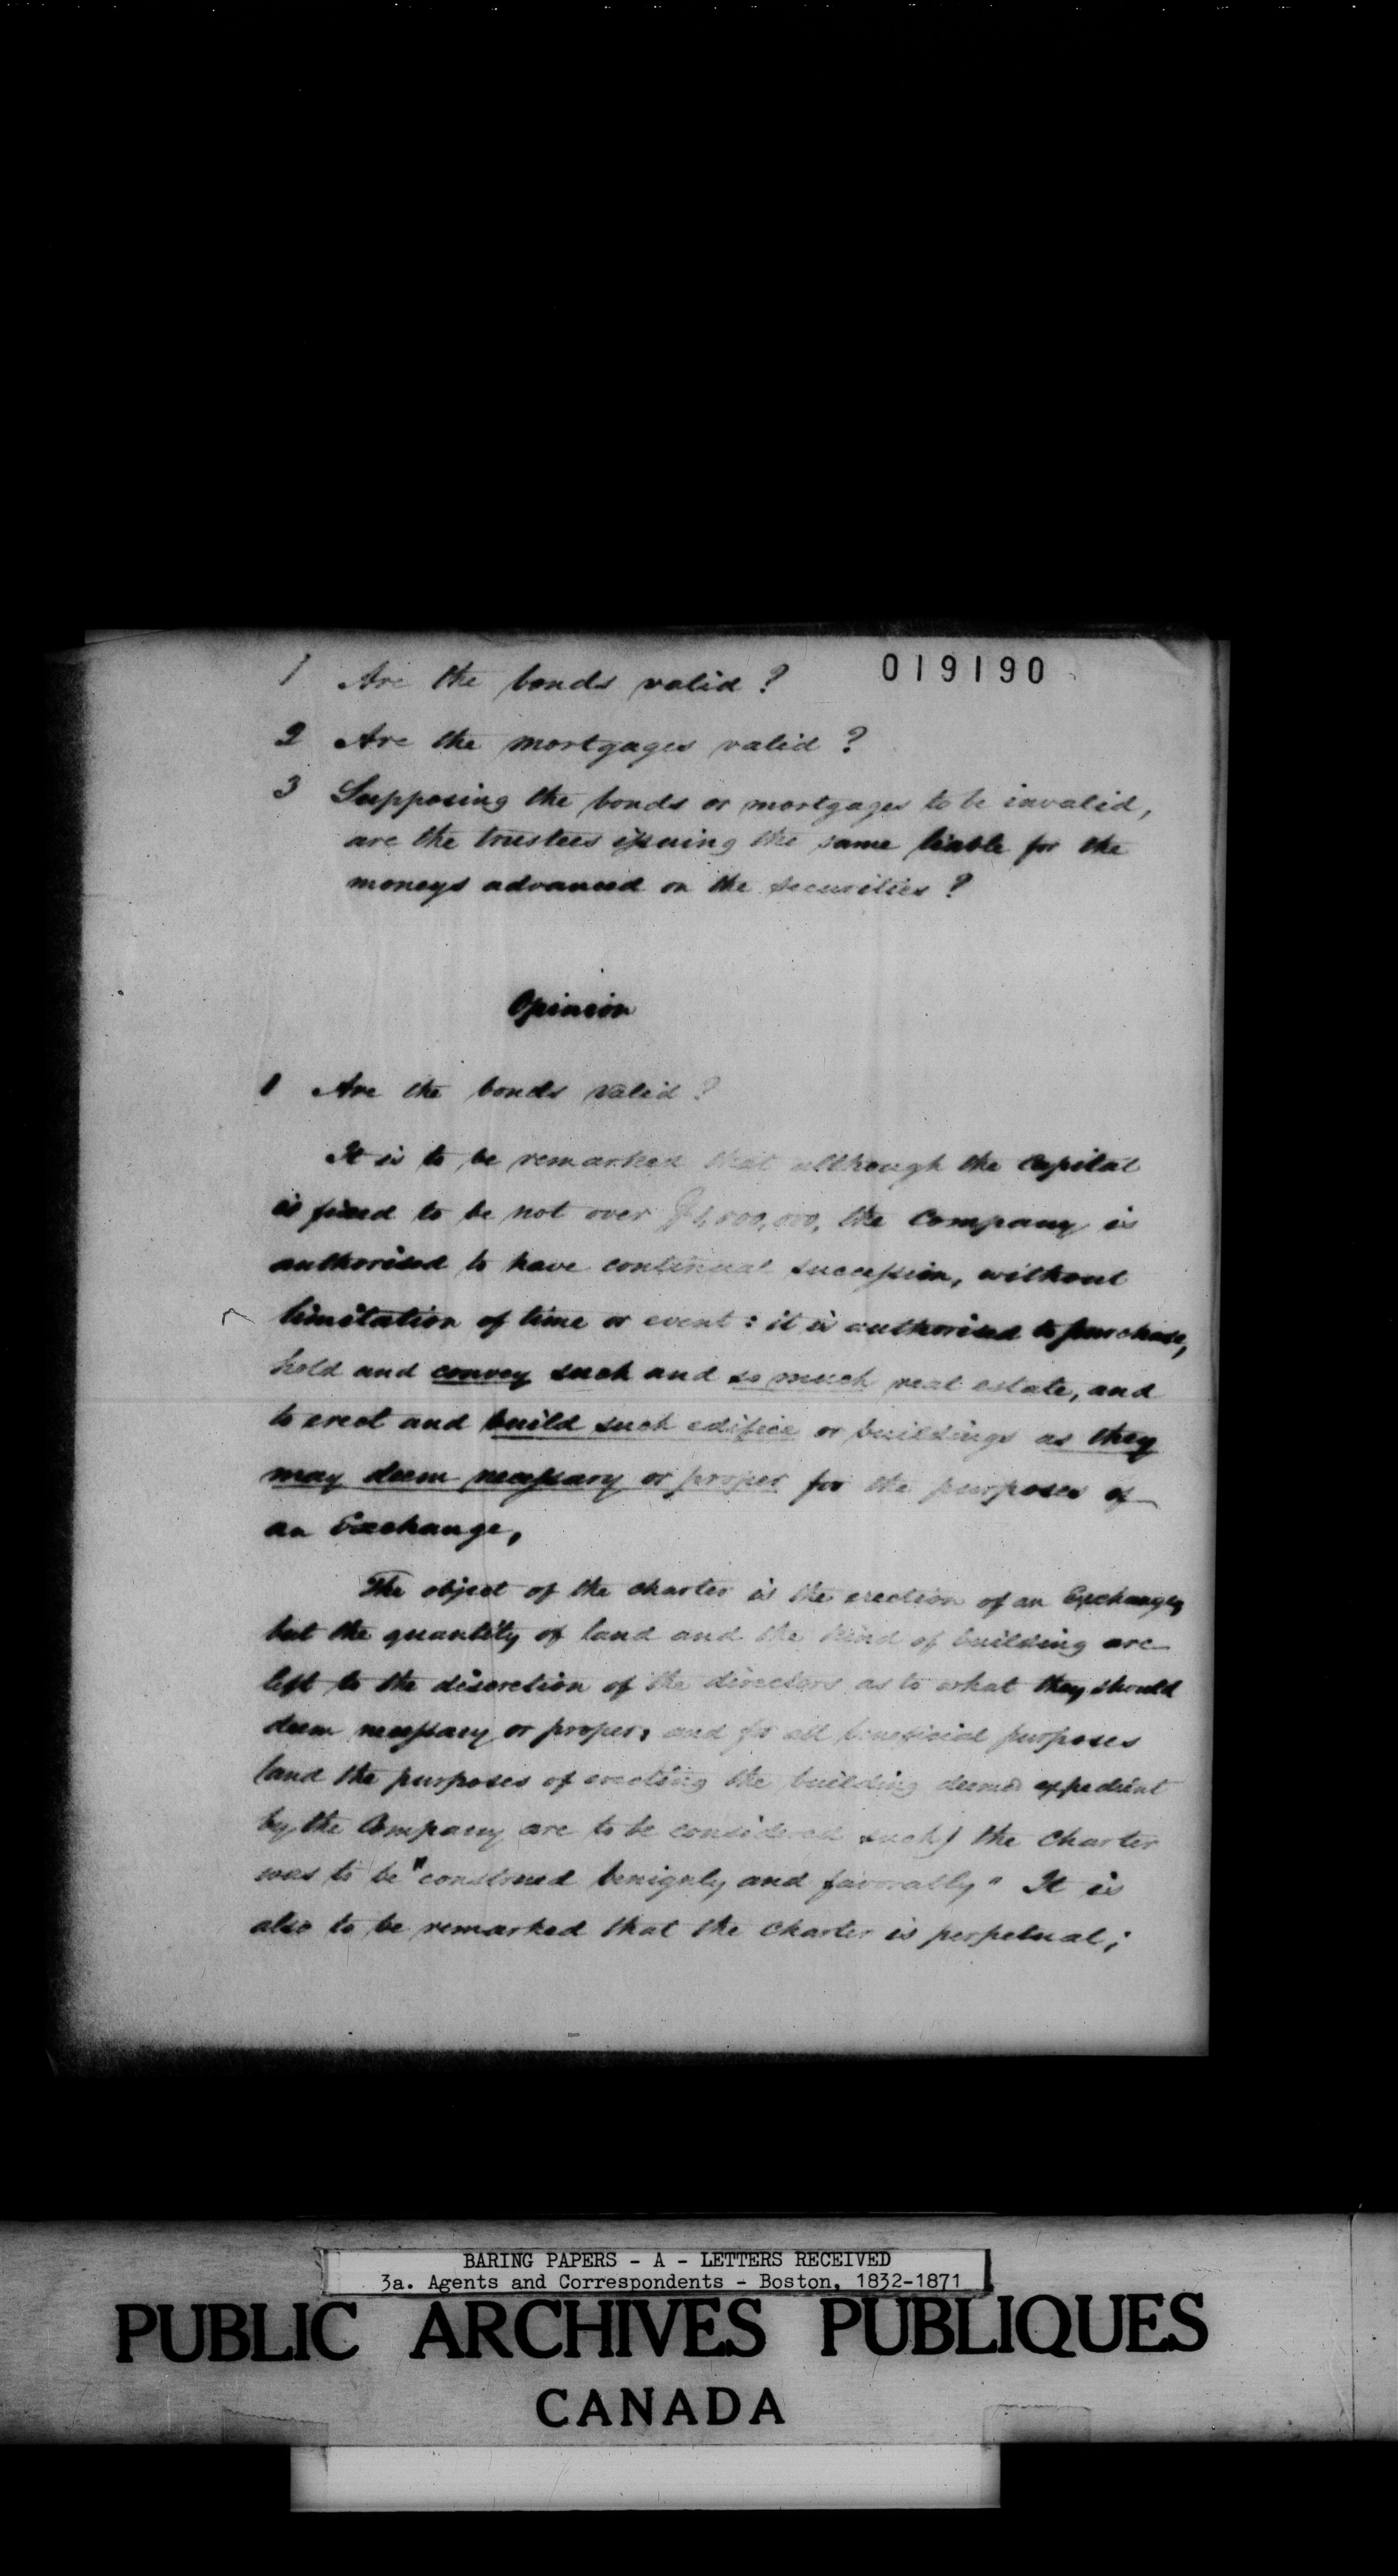 019190
1 Are the bonds valid?
2 Are the mortgages valid?
3 Supposing the bonds or mortgages to be invalid,
are the trustees issuing the same liable for the
moneys advanced on the securities?
Opinion
1 Are the bonds valid?
It is to be remarked that although the capital
is fixed to be not over $1,000,000, the Company is
authorised to have continual succession, without
limitation of time or event: it is authorised to purchase,
hold and convey such and so much real estate, and
to erect and build such edifice or buildings as they
may deem necessary or proper for the purposes of
an Exchange,
The object of the charter is the erection of an Exchange,
but the quantity of land and the kind of building are
left to the discretion of the directors as to what they should
deem necessary or proper, and for all beneficial purposes
(and the purposes of erecting the building deemed expedient
by the Company are to be considered such) the charter
was to be "construed benignly and favorably" It is
also to be remarked that the charter is perpetual;
BARING PAPERS - A - LETTERS RECEIVED
3a. Agents and Correspondents - Boston, 1832-1871
PUBLIC ARCHIVES PUBLIQUES
CANADA